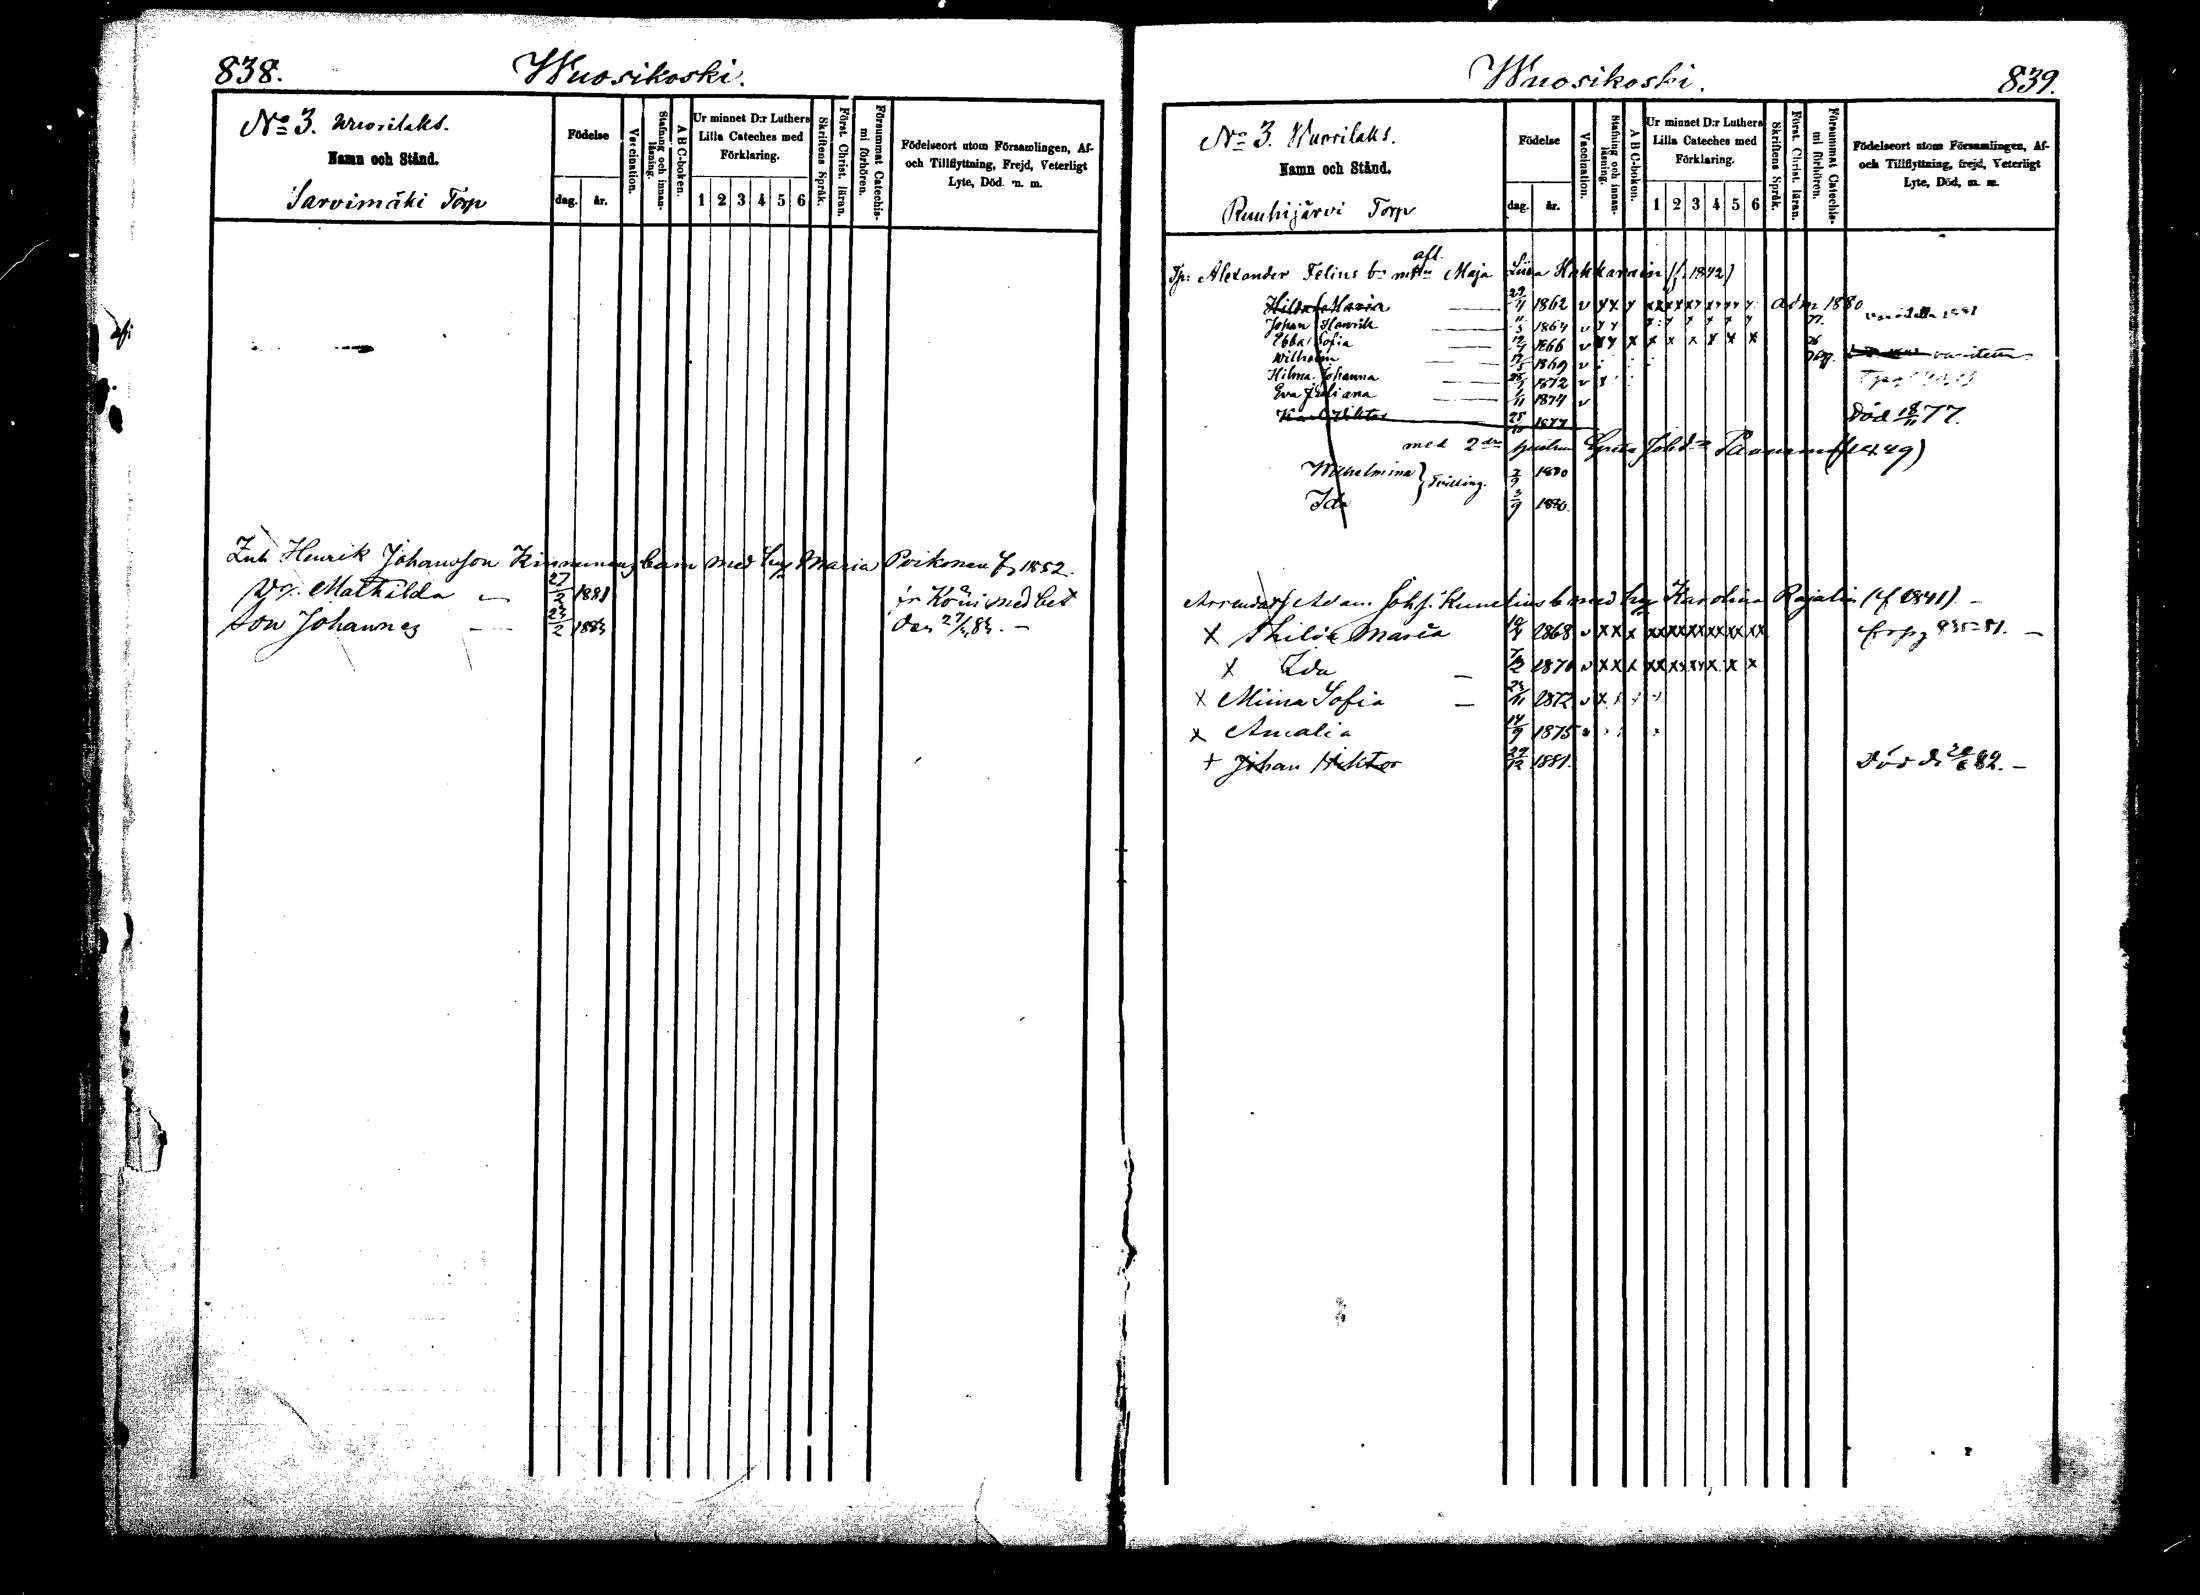 838.
Wuosikoski.
No 3. Wuosilaks.
Namn och Stånd.
Sarvimäki Torp
Födelse
dag. år.
Vaccination.
Stafning och innan-läsning.
A B C-boken.
Ur minnet D:r Luthers
Lilla Cateches med
Förklaring.
1 2 3 4 5 6
Skriftens Språk.
Först. Christ. läran.
Försummat Catechis-mi förhören.
Födelseort utom Församlingen, Af-
och Tillflyttning, Frejd, Veterligt
Lyte, Död m. m.
Inh Henrik Johansson Kinnunens barn med hu Maria Poikonen f 1852.
Mathilda 27/2 1881
Son Johannes 23/2 1883
med bet
den 27/ 83. –
Wuosikoski.
839.
No 3. Wuosilaks.
Namn och Stånd.
Ruuhijärvi Torp
Födelse
dag. år.
Vaccination.
Stafning och innan-läsning.
A B C-bokon.
Ur minnet D:r Luthers
Lilla Cateches med
Förklaring.
1 2 3 4 5 6
Skriftens Språk.
Först. Christ. läran.
Försummat Catechis-mi förhören.
Födelseort utom Församlingen, Af-
och Tillflyttning, frejd, Veterligt
Lyte, Död, m. m.
afl.
Tp: Alexander Felius b. m. Maja Liisa Hakkarain (f. 1842)
Hilda Maria 29/4 1862 v adm 1880
Johan Henrik 1864 v 77.
Ebba Sofia 1866 v
Wilhelm 1869 v
Hilma Johanna 1872 v
Eva Juliana 1874 v
Karl Viktor 25/10 1877 Död 18/11 77.
med 2dra hustrun Johsd:r (f. 1849)
Wilhelmina 3/9 1880
Tvilling.
Ida 3/9 1880.
Arrendat. Adam Johs. Kunelius b. med hu Karolina Rajalin (f 1841). –
x Thilda Maria 1868 v
x Ida 1870 v
x Miina Sofia 23/11 1872 v
x Amalia 14/9 1875
+ Johan Viktor 27/12 1881. Död d. 20/6 82. –